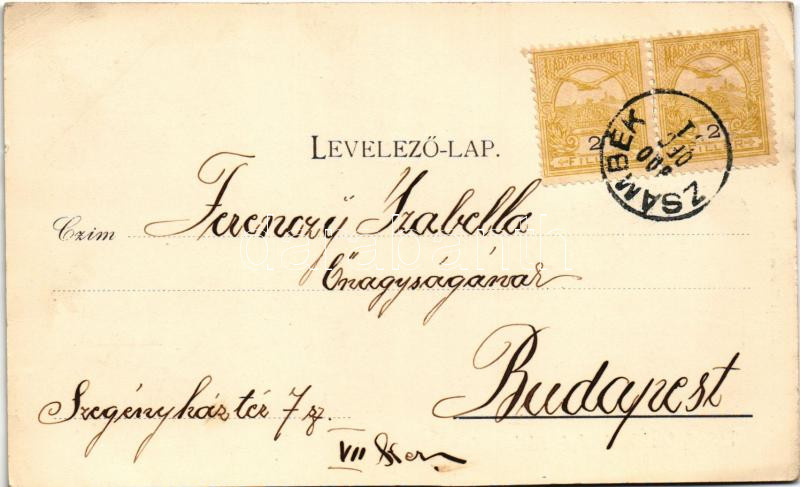 MAGYAR KIR. POSTA MAGYAR KIR. POSTA
2 2
FILL FILL
ZSÁMBÉK
900
LEVELEZŐ-LAP.
Czim Ferenczÿ Izabella
Őnagyságának
Budapest
Szegényház tér 7 sz.
VII ker
darabanth